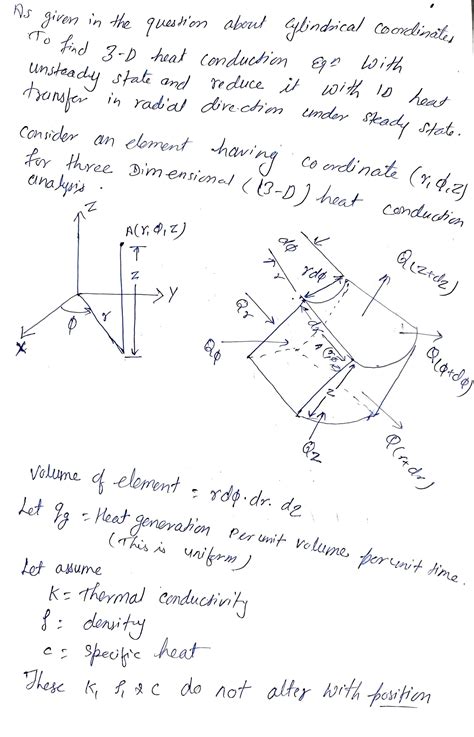 As given in the question about Cylindrical coordinates
To find 3-D heat conduction Eqn with
unsteady state and reduce it with 1D heat
transfer in radial direction under steady state.
Consider an element having coordinate (r, φ, z)
for three Dimensional (3-D) heat conduction
analysis.
Z
A(r, φ, z)
z
Y
φ
r
X
dφ
r
rdφ
Q(z+dz)
Qr
dr
Qφ
Q(φ+dφ)
z
Qz
Q(r+dr)
Volume of element = rdφ·dr·dz
Let qg = Heat generation per unit volume per unit time.
(This is uniform)
Let assume
K = Thermal conductivity
ρ = density
c = specific heat
These K, ρ, & c do not alter with position